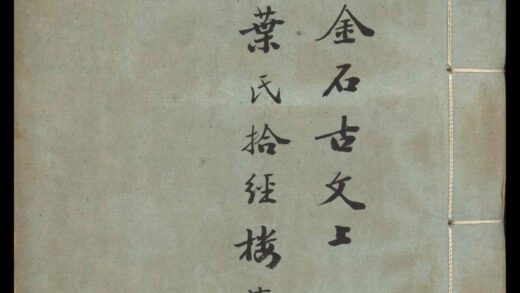 金石古文上
葉氏拾經樓